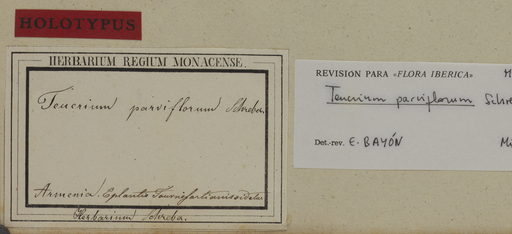 HOLOTYPUS
HERBARIUM REGIUM MONACENSE.
Teucrium parviflorum Schreber.
Armenia. E plantis Tournefortianis
Herbarium Schreba.
REVISION PARA «FLORA IBERICA»
Teucrium parviflorum Schre
Det.-rev. E. BAYÓN